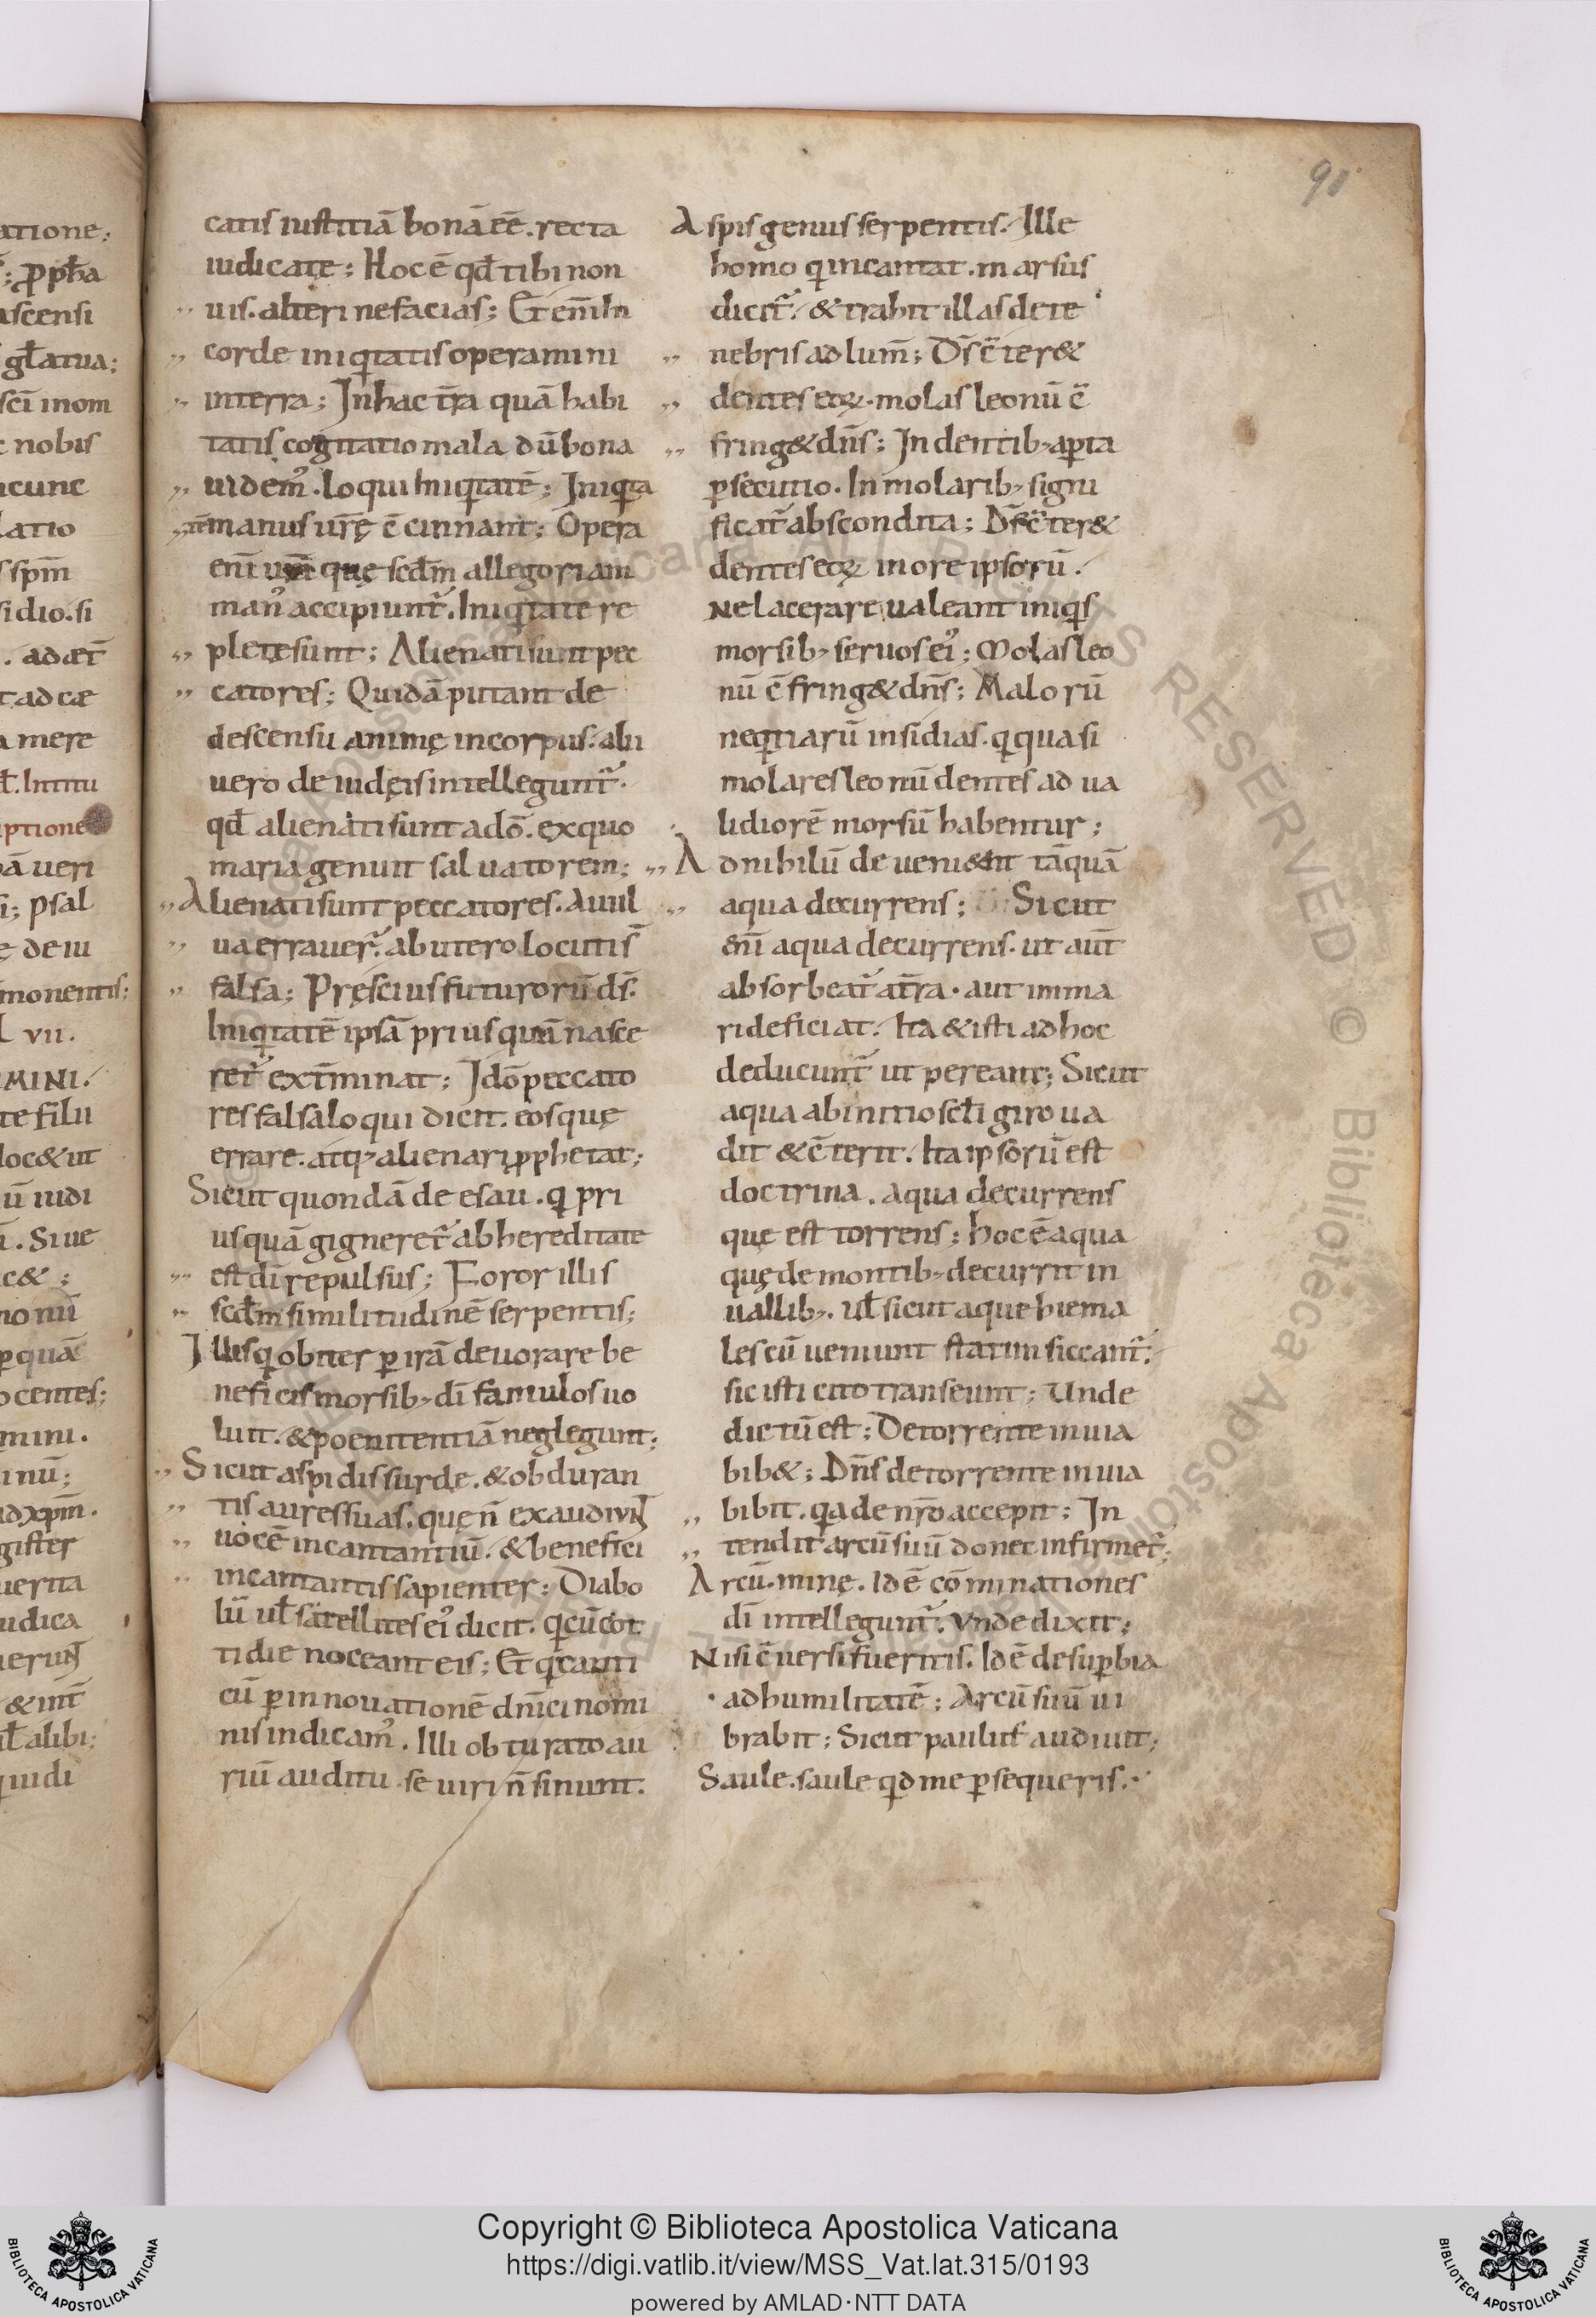 atione;
; ꝓph̄a
ascensi
gl̄a tua;
sc̄i in om
nobis
cunc
latio
s spm̄
sidio. si
. ad æt̄
t ad cæ
a mere
Intitu
ptione
ā ueri
i; psal
ę de iu
monentis;
L VII.
MINI.
te filii
loc& ut
ū iudi
. Siue
c& ;
no nū
ꝑ quā
centes;
mini.
nū;
ad xpm̄.
gister
uerita
iudica
& int̄
ul̄ alibi;
iudi
91
catis iustitiā bonā eē. recta
iudicate; Hoc ē qd̄ tibi non
uis. alteri ne facias; Et enī In
corde iniqͥtatis operamini
in terra; In hac tr̄a quā habi
tatis cogitatio mala dū bona
uidem᾽. loqui Iniqͥtatē; Iniqͥta
tē manus urę̄ c̄cinnant; Opera
eni quę scd̄m allegoriam
man᾽ accipiunt᷑. Iniqͥtate re
pletę sunt; Alienati sunt pec
catores; Quidā putant de
descensu animę in corpus. alii
uero de iudęis intellegunt᷑.
qd̄ alienati sunt a dō. ex quo
maria genuit saluatorem;
Alienati sunt peccatores. A uul
ua errauer᷑. ab utero locuti s̄
falsa; Pręscius futurorū ds̄.
Iniqͥtatē ipsā prius quā nasce
ret᷑ ext̄minat; Idō peccato
res falsa loqui dicit. eos quę
errare. atq; alienari ꝓphetat;
Sicut quondā de esau. qͥ pri
usquā gigneret᷑ ab hereditate
est dī repulsus; Foror illis
scd̄m similitudinē serpentis;
Illis qͥ obiter ꝑ irā deuorare be
neficis morsib; dī famulos uo
luit. & poenitentiā neglegunt;
Sicut aspidis surde. & obduran
tis aures suas. quę n̄ exaudiuN̄
uocē incantantiū. & benefici
incantantis sapienter; Diabo
lū ul̄ satellites ei᾽ dicit. qͥcū cot
tidie noceant eis; Et qͥcanti
cū ꝑ innouationē dn̄ici nomi
nis indicam᾽. Illi obturato au
riū auditu se uiri n̄ sinunt.
Aspis genus serpentis. Ille
homo qͥ incantat. marsus
dicit᷑. & trahit illas de te
nebris ad lum̄; Ds̄ c̄ter&
dentes eoꝝ. molas leonū c̄
fring& dn̄s; In dentib; aꝑta
ꝑsecutio. In molarib; signi
ficat᷑ abscondita; Ds̄ c̄ter&
dentes eoꝝ in ore ipsorū.
Ne lacerare ualeant iniqͥs
morsib; seruos ei᾽; Molas leo
nū c̄fring& dn̄s; Malorū
neqͥtiarū insidias. qͥ quasi
molares leonū dentes ad ua
lidiorē morsū habentur;
Ad nihilū deuenient tāquā
aqua decurrens; Sicut
enī aqua decurrens. ut aut̄
absorbeat᷑ a tr̄a. aut in ma
ri deficiat. Ita & isti ad hoc
deducunt᷑ ut pereant; Sicut
aqua ab initio scl̄i giro ua
dit & c̄terit. Ita ipsorū est
doctrina. Aqua decurrens
quę est torrens; hoc ē aqua
quę de montib; decurrit in
uallib;. ul̄ sicut aque hiema
les cū ueniunt statim siccant᷑.
sic isti cito transeunt; Unde
dictū est; De torrente in uia
bib&; Dn̄s de torrente in uia
bibit. qͥa de nr̄o accepit; In
tendit arcū suū donec infirmet᷑;
Arcū. minę. Id ē cōminationes
dī intellegunt᷑. Vnde dixit;
Nisi c̄uersi fueritis. Id ē de suꝑbia
ad humilitatē; Arcū suū ui
brabit; Sicut paulus audiuit;
Saule. saule qͥd me ꝑsequeris.
Copyright © Biblioteca Apostolica Vaticana
https://digi.vatlib.it/view/MSS_Vat.lat.315/0193
powered by AMLAD·NTT DATA
BIBLIOTECA APOSTOLICA VATICANA
BIBLIOTECA APOSTOLICA VATICANA